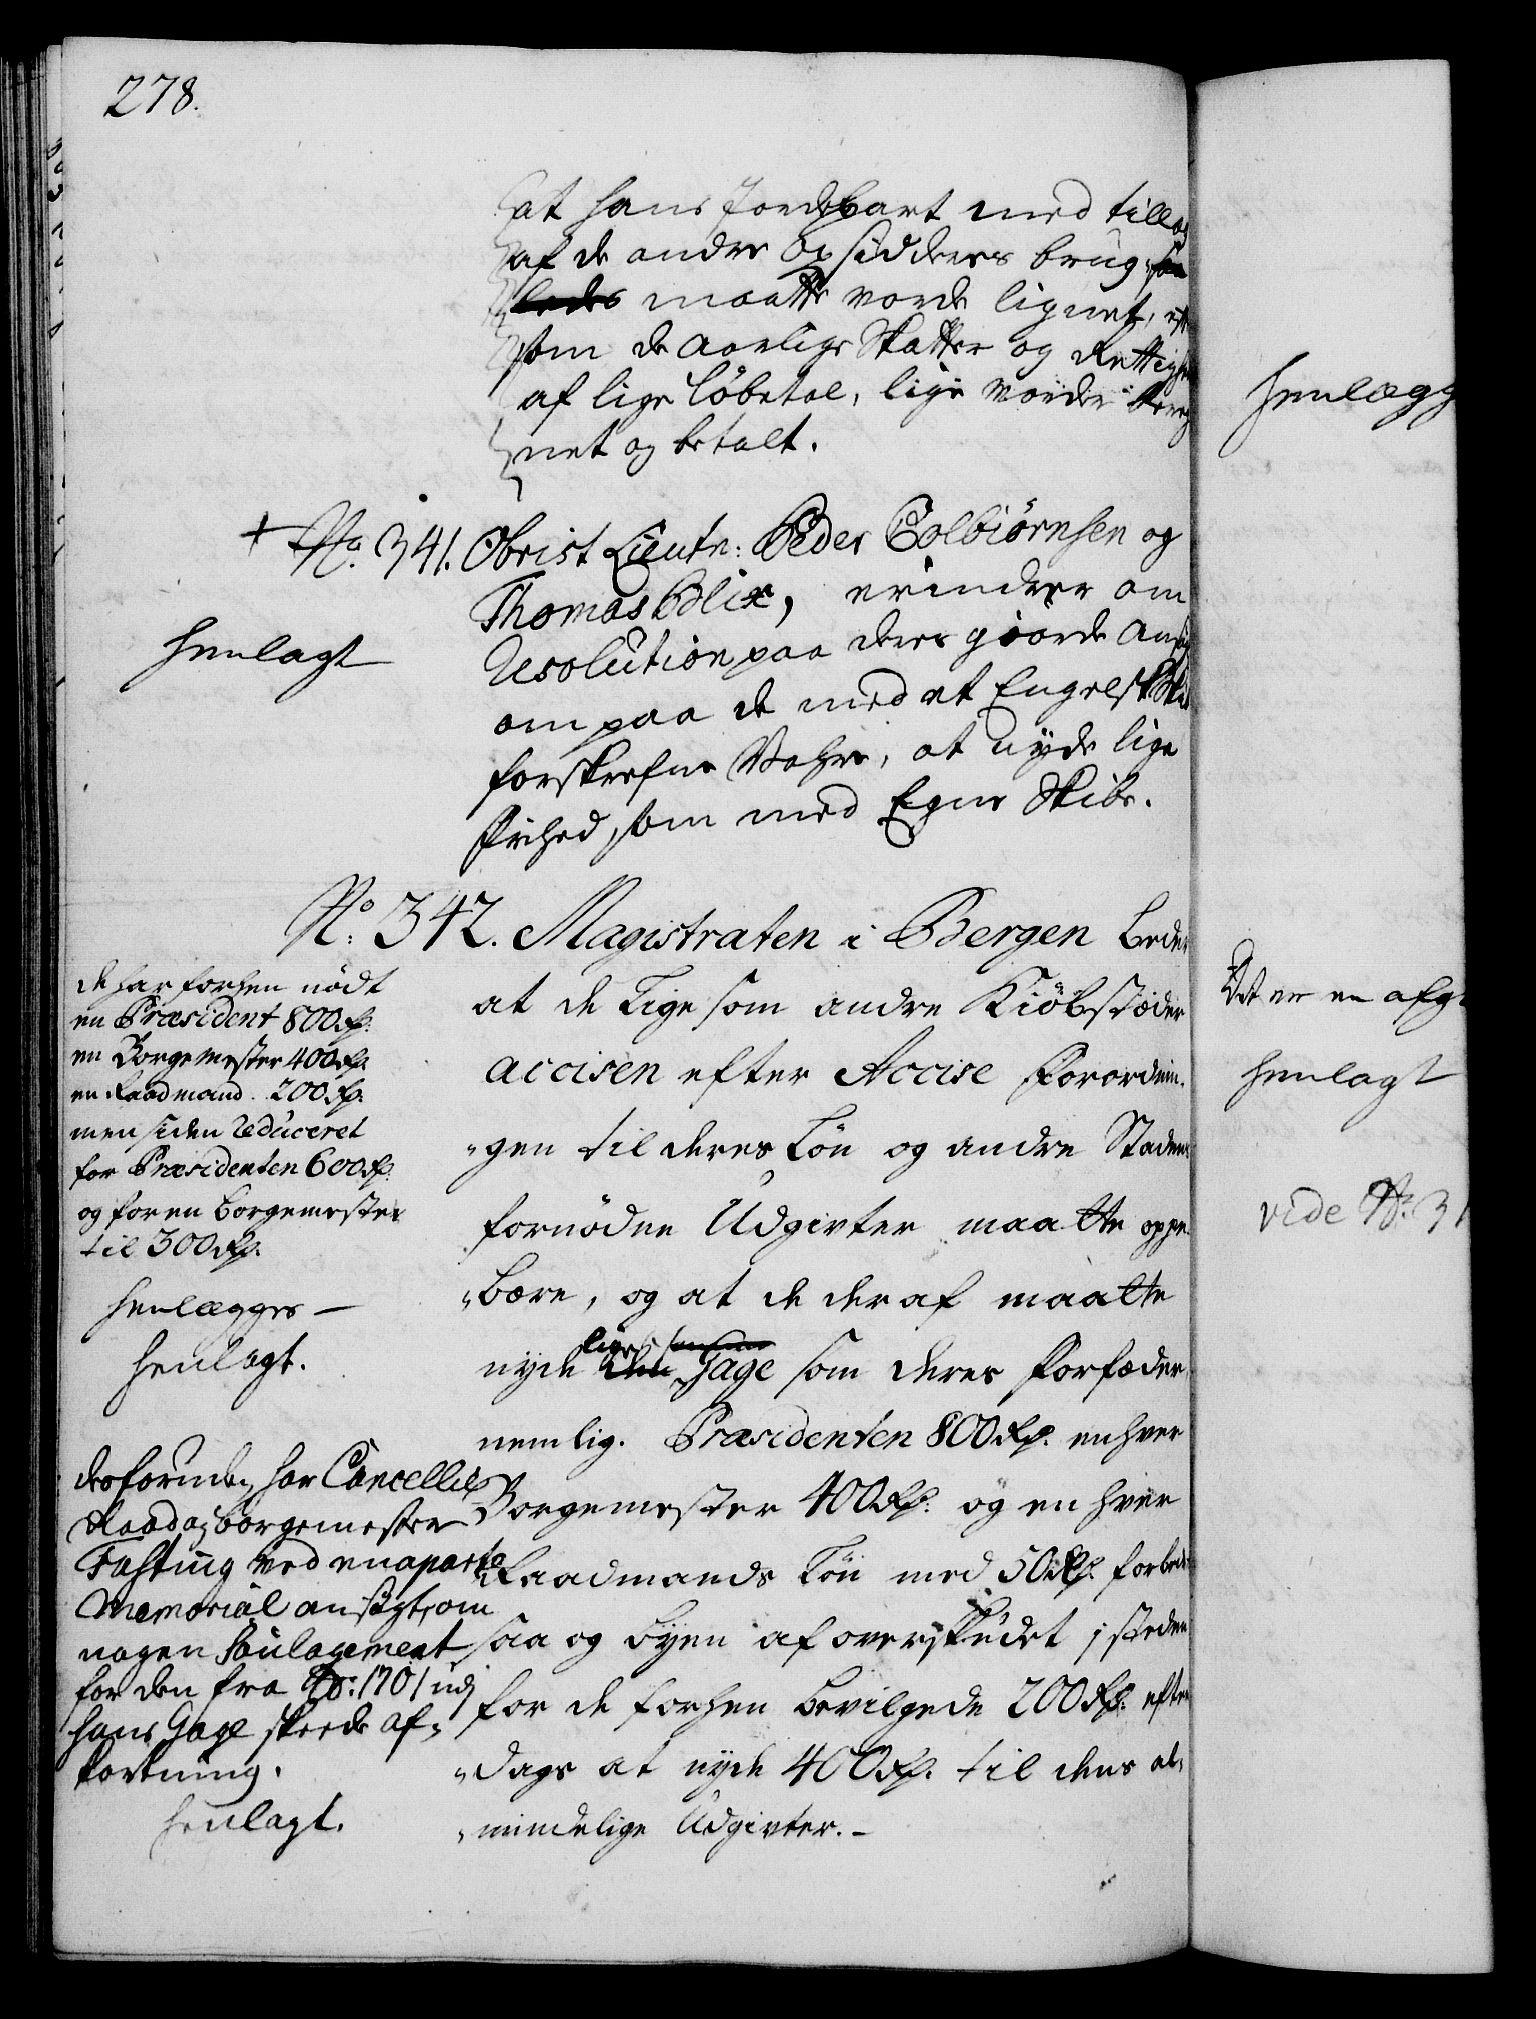 278.
at hans Jordepart med tillag
af de andre Opsidderes brug, saa
ledes maatte vorde lignet, eft
som de aarlige Skatter og Rettighe
af lige Løbetal, lige vorder bereg
net og betalt.
+ No. 341. Obrist Lieutn: Peder Colbiørnsen og
Thomas Blix, erindrer om
Resolution paa deres giorde Ansøg
om paa de med et Engelsk Skib
forskrefne Vahre, at nyde lige
Frihed, som med Egne Skibe.
henlagt
No: 342. Magistraten i Bergen beder
at de lige som andre Kiøbstæder
accisen efter Accise Forordnin-
gen til deres Løn og andre Stadens
fornødne Udgivter maatte oppe-
bære, og at de deraf maatte
nyde den lige Gage som deres Forfædere
nemlig. Præsidenten 800 Rd. enhver
Borgemester 400 Rd. og en hver
Raadmands Løn med 50 Rd. forbed
saa og Byen af overskudet j steden
for de forhen bevilgede 200 Rd. efter
dags at nyde 400 Rd. til dens al-
mindelige Udgivter.-
de har forhen nødt
en Præsident 800 Rd.
en Borgemester 400 Rd.
en Raadmand. 200 Rd.
men siden reduceret
for Præsidenten 600 Rd.
og for en borgemester
til 300 Rd.
henlægges -
henlagt.
desforuden har Cancellie
Raad og borgemester
Fasting ved en aparte
Memorial ansøgt, om
nogen Soulagement
for den fra Ao: 1701 udj
hans Gage skeede af-
kortning.
henlagt.
henlægg
Det er en afg
henlagt
vide No. 3